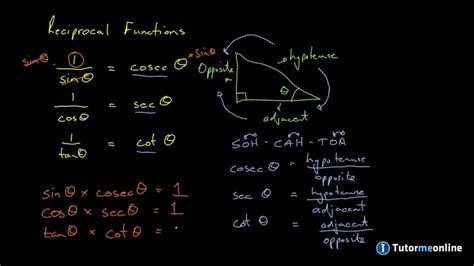 Reciprocal Functions
sinθ × 1/sinθ = cosec θ × sinθ
1/cosθ = sec θ
1/tanθ = cot θ
sinθ × cosecθ = 1
cosθ × secθ = 1
tanθ × cotθ =
Opposite
hypotenuse
θ
adjacent
SOH - CAH - TOA
cosec θ = hypotenuse/opposite
sec θ = hypotenuse/adjacent
cot θ = adjacent/opposite
Tutormeonline